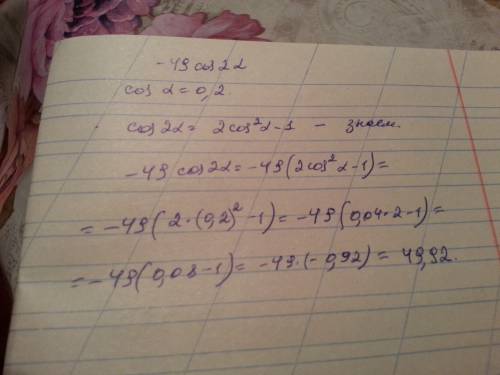 -49 cos 2α
cos α = 0,2.
cos 2α = 2cos²α-1 - знаем.
-49 cos 2α = -49(2cos²α-1)=
= -49(2·(0,2)²-1)= -49(0,04·2-1)=
= -49(0,08-1)= -49·(-0,92)= 49,92.